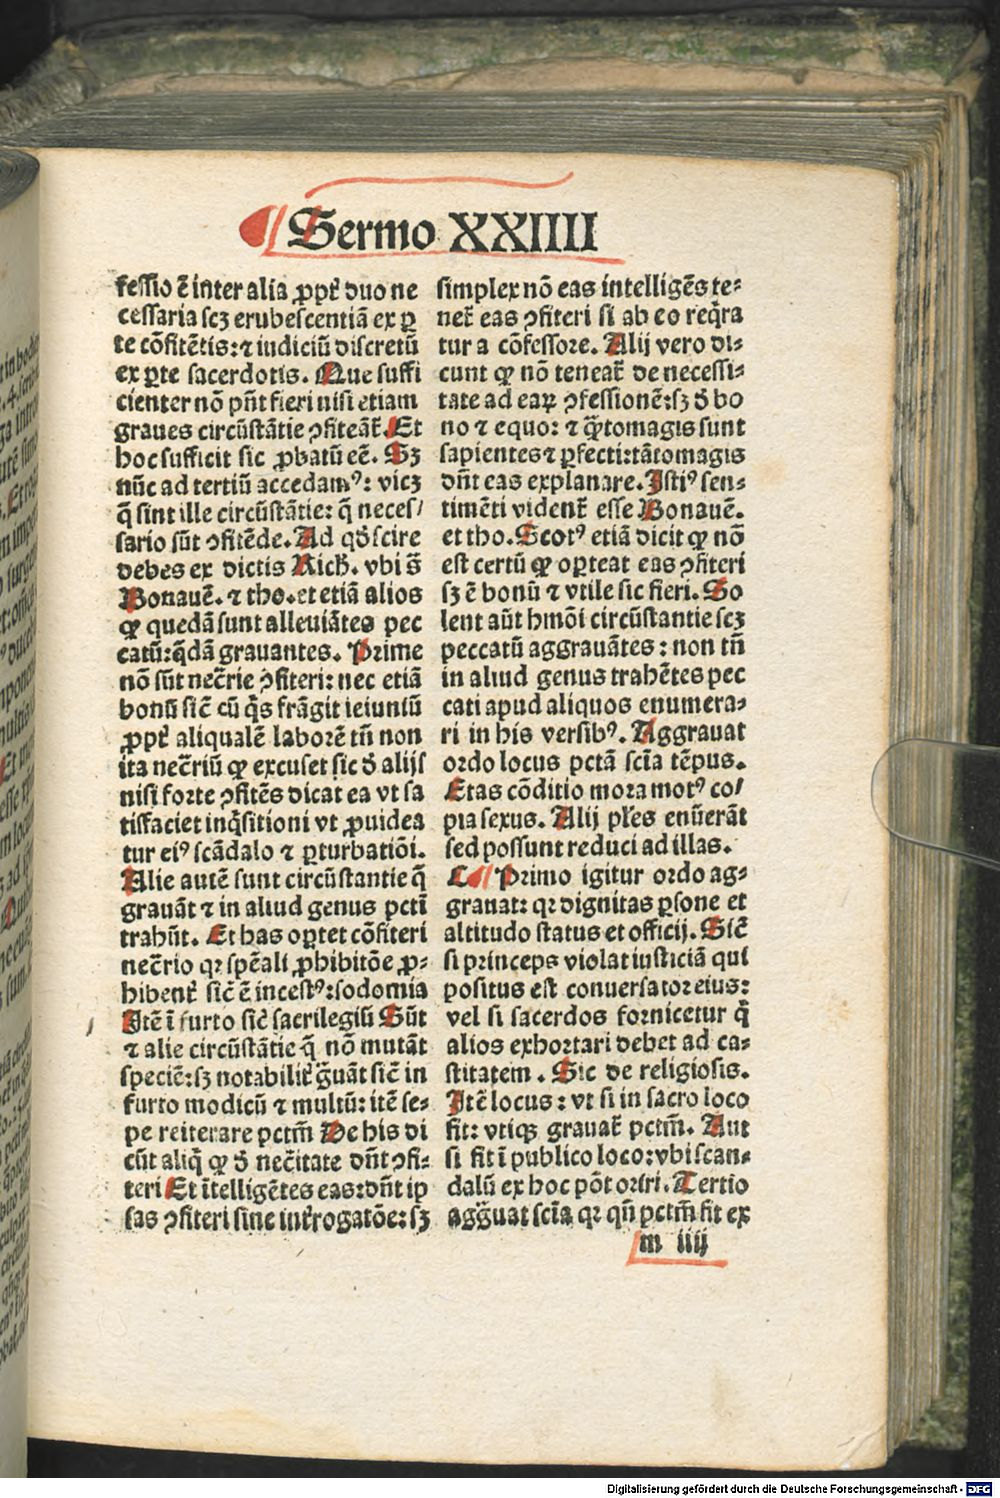 Sermo XXIIII
fessio ē inter alia ꝓpt̄ duo ne
cessaria scꝫ erubescentiā ex ꝑ
te cōfitētis: ⁊ iudiciū discretū
ex ꝑte sacerdotis. Que suffi
cienter nō pn̄t fieri nisi etiam
graues circūstātie ꝯfiteāt̄. Et
hoc sufficit sic ꝓbatū eē. Sꝫ
nūc ad tertiū accedamꝰ: vicꝫ
q̄ sint ille circūstātie: q̄ neces/
sario sūt ꝯfitēde. Ad qd̄ scire
debes ex dictis Rich. vbi s̄
Bonauē. ⁊ tho. et etiā alios
ꝙ quedā sunt alleuiātes pec
catū: q̄dā grauantes. Prime
nō sūt nec̄rie ꝯfiteri: nec etiā
bonū sic̄ cū q̄s frāgit ieiuniū
ꝓpt̄ aliqualē laborē tn̄ non
ita nec̄riū ꝙ excuset sic d̄ alijs
nisi forte ꝯfitēs dicat ea vt sa
tisfaciet inq̄sitioni vt ꝓuidea
tur eiꝰ scādalo ⁊ ꝑturbatiōi.
Alie autē sunt circūstantie q̄
grauāt ⁊ in aliud genus pcti̅
trahūt. Et has oportet cōfiteri
nec̄rio qꝛ spēali ꝓhibitōe ꝓ-
hibent̄ sic̄ ē incestꝰ: sodomia
Itē ī furto sic̄ sacrilegiū Sūt
⁊ alie circūstātie q̄ nō mutāt
speciē: sꝫ notabilit̄ g̈uāt sic̄ in
furto modicū ⁊ multū: itē se-
pe reiterare pctm̄ De his di
cūt aliq̄ ꝙ d̄ nec̄itate dn̄t ꝯfi-
teri Et ītelligētes eas: dn̄t ip
sas ꝯfiteri sine int̄rogatōe: sꝫ
simplex nō eas intelligēs te-
net̄ eas ꝯfiteri si ab eo req̄ra
tur a cōfessore. Alij vero di-
cunt ꝙ nō teneāt̄ de necessi-
tate ad eaꝝ ꝯfessionē: sꝫ d̄ bo
no ⁊ equo: ⁊ q̄tomagis sunt
sapientes ⁊ ꝑfecti: tātomagis
dn̄t eas explanare. Istiꝰ sen-
timēti vident̄ esse Bonauē.
et tho. Scotꝰ etiā dicit ꝙ nō
est certū ꝙ oꝑteat eas ꝯfiteri
sꝫ ē bonū ⁊ vtile sic fieri. So
lent aūt hmōi circūstantie scꝫ
peccatū aggrauātes: non tn̄
in aliud genus trahētes pec
cati apud aliquos enumera-
ri in his versibꝰ. Aggrauat
ordo locus pctā scīa tēpus.
Etas cōditio mora motꝰ co/
pia sexus. Alij pl̄es enūerāt
sed possunt reduci ad illas.
C Primo igitur ordo ag-
grauat: qꝛ dignitas ꝑsone et
altitudo status et officij. Sic̄
si princeps violat iusticiā qui
positus est conuersator eius:
vel si sacerdos fornicetur q̄
alios exhortari debet ad ca-
stitatem. Sic de religiosis.
Itē locus: vt si in sacro loco
fit: vtiqꝫ grauat̄ pctm̄. Aut
si fit ī publico loco: vbi scan-
dalū ex hoc pōt oriri. Tertio
agg̈uat scīa qꝛ qn̄ pctm̄ fit ex
m iiij
Digitalisierung gefördert durch die Deutsche Forschungsgemeinschaft - DFG